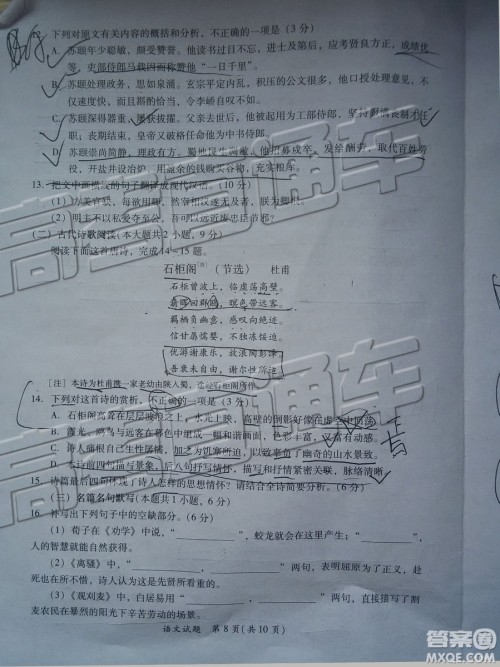 下列对原文有关内容的概括和分析，不正确的一项是（3分）
A. 苏颋年少聪敏，颇受赞誉。他读书过目不忘，进士及第后，应考贤良方正，成绩优
等，吏部侍郎马载因而称赞他“一日千里”。
B. 苏颋处理政务，思如泉涌。玄宗平定内乱，积压的公文很多，他口授处理意见，不
仅速度快，而且条理分明，令李峤自叹不如。
C. 苏颋深得器重，屡获拔擢。父亲去世后，他被起用为工部侍郎，坚持服满丧制才任
职；丧期结束，皇帝又破格任命他为中书侍郎。
D. 苏颋崇尚简静，理政有方。蜀地民生凋敝，他招募戍卒，发给酬劳，取代百姓劳
役，开盐井设冶炉，用盈余的钱购买谷物，充实粮库。
13. 把文中画横线的句子翻译成现代汉语。（10分）
（1）方美官缺，每欲用卿，然宰相议，
（2）明主不以私爱夺至公，吾可以远近废忠臣节邪？
（二）古代诗歌阅读（本大题共2小题，9分）
阅读下面这首唐诗，完成14～15题。
石柜阁[注]（节选） 杜甫
石柜曾波上，临虚荡高壁。
清晖回群鸥，暝色带远客。
羁栖负幽意，感叹向绝迹。
信甘孱懦婴，不独冻馁迫。
优游谢康乐，放浪陶彭泽。
吾衰未自由，谢尔性所适。
[注] 本诗为杜甫携一家老幼由陕入蜀，途经石柜阁所作。
14. 下列对这首诗的赏析，不正确的一项是（3分）
A. 石柜阁高耸在层层波浪之上，水光上映，高壁的倒影好像在虚空中回荡。
B. 霞光、鸥鸟与远客在暮色中组成一幅和谐画面，色彩丰富，富有动感。
C. 诗人痛恨自己生性孱懦，加之为饥寒所迫，以致辜负了幽奇的山水景致。
D. 本诗前四句描写景象，后八句抒写情怀，描写和抒情紧密关联，脉络清晰。
15. 诗篇最后四句抒发了诗人怎样的思想情怀？请结合全诗简要分析。（6分）
（三）名篇名句默写（本题共1小题，6分）
16. 补写出下列句子中的空缺部分。（6分）
（1）荀子在《劝学》中说，“________，蛟龙就会在这里产生；“________，
人的智慧就能自然获得。
（2）《离骚》中，“________，________”两句，表明屈原为了正义，赴
死也在所不惜，诗人认为这是先贤所看重的。
（3）《观刈麦》中，白居易用“________，________”两句，直接描写了割
麦农民在暴烈的阳光下辛苦劳动的场景。
语文试题 第8页（共10页）
高考直通车
答案圈
MXQE.COM